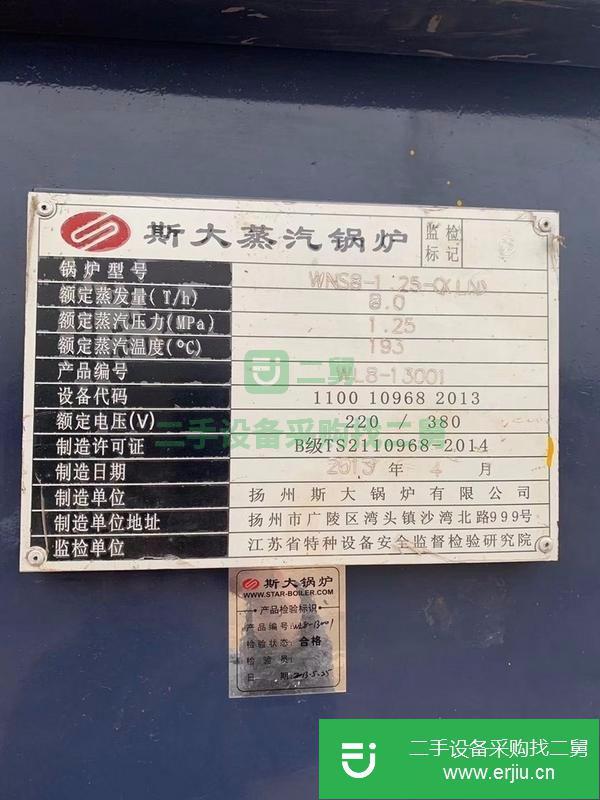 斯大蒸汽锅炉 监检标记
锅炉型号 WNS8-1.25-Q(LN)
额定蒸发量(T/h) 8.0
额定蒸汽压力(MPa) 1.25
额定蒸汽温度(°C) 193
产品编号 WL8-13001
设备代码 1100 10968 2013
额定电压(V) 220 / 380
制造许可证 B级TS2110968-2014
制造日期 2013 年 4 月
制造单位 扬州斯大锅炉有限公司
制造单位地址 扬州市广陵区湾头镇沙湾北路999号
监检单位 江苏省特种设备安全监督检验研究院
二舅
二手设备采购找二舅
斯大锅炉
WWW.STAR-BOILER.COM
产品检验标识
产品编号:WL8-13001
检验状态:合格
检验员:
日期:2013-5-25
二手设备采购找二舅
www.erjiu.cn